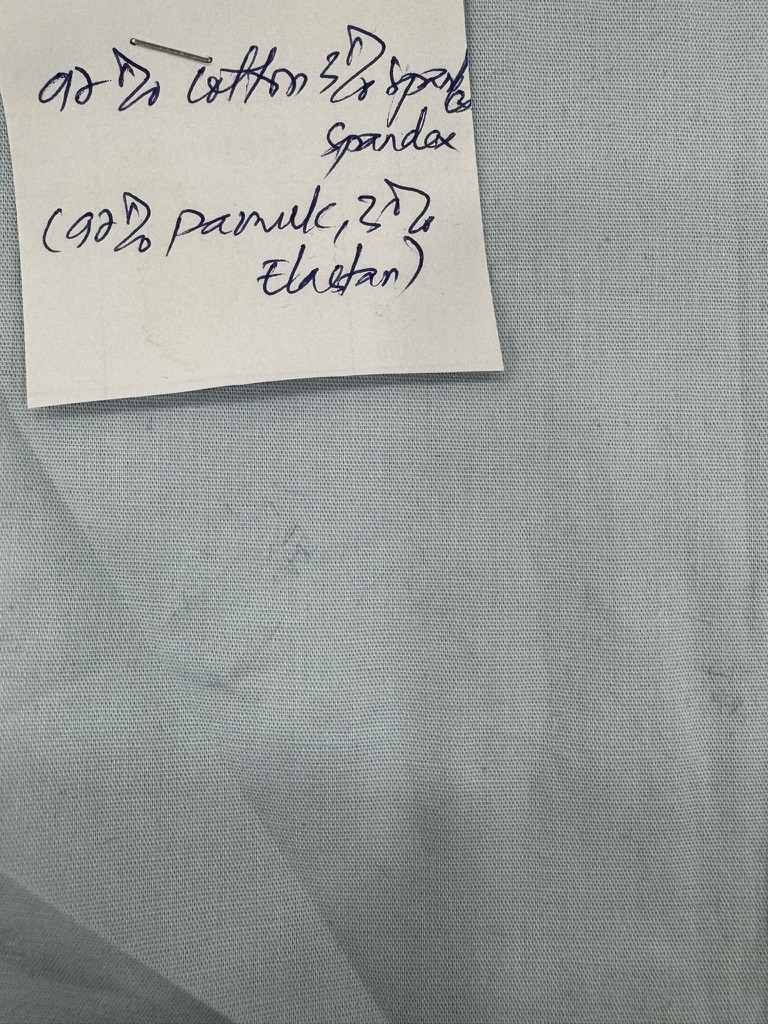 97% Cotton 3% Span
Spandex
(97% pamuk, 3%
Elastan)